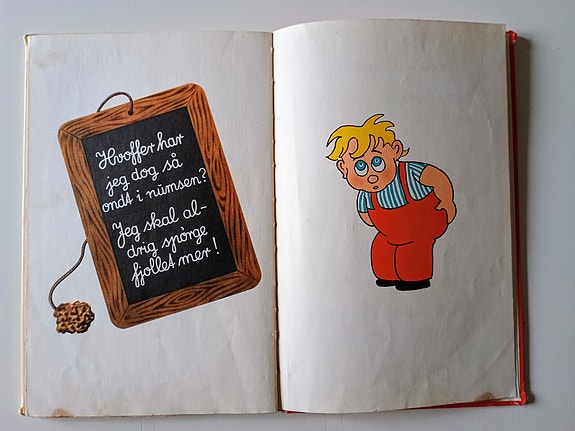 Hvoffer har
jeg dog så
ondt i nùmsen?
Jeg skal al-
drig spòrge
fjollet mer!